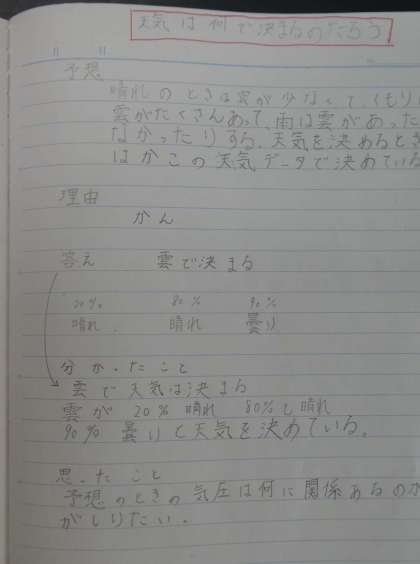 天気は何で決まるのだろう
予想
晴れのときは雲が少なくて、くもり
雲がたくさんあって、雨は雲があった
なかったりする。天気を決めるとき
はかこの天気データで決めている
理由
かん
答え 雲で決まる
20% 80% 90%
晴れ 晴れ 曇り
分かったこと
雲で天気は決まる
雲が 20% 晴れ 80%も晴れ
90% 曇りと天気を決めている。
思ったこと
予想のときの気圧は何に関係あるのか
がしりたい。